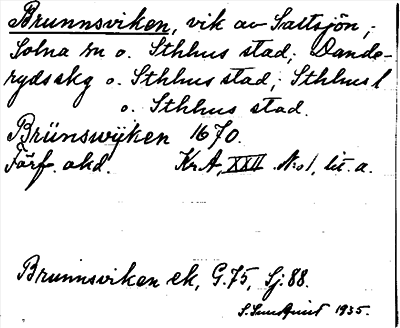 Brunnsviken, vik av Saltsjön,
Solna sn o. Sthlms stad; Dande-
rydsskg o. Sthlms stad; Sthlms l
o. Sthlms stad.
Brünswijken 1670.
Förf. okd. Kr.A, XXII No 1, lit. a.
Brunnsviken ek, G.75, Sj:88.
S. Sundquist 1935.